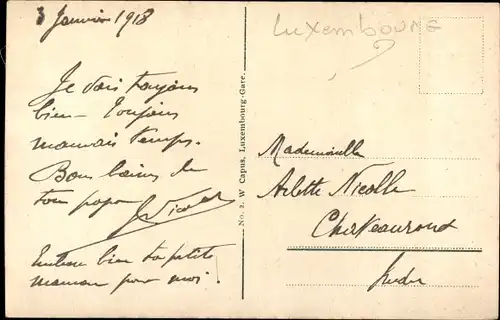 3 Janvier 1918
Je vais toujours
bien - Toujours
mauvais temps.
Bons baisers de
ton papa
Embrasse bien ta petite
maman pour moi.
No. 2. W Capus, Luxembourg-Gare.
Luxembourg
Mademoiselle
Arlette Nicolle
Chateauroux
Indre